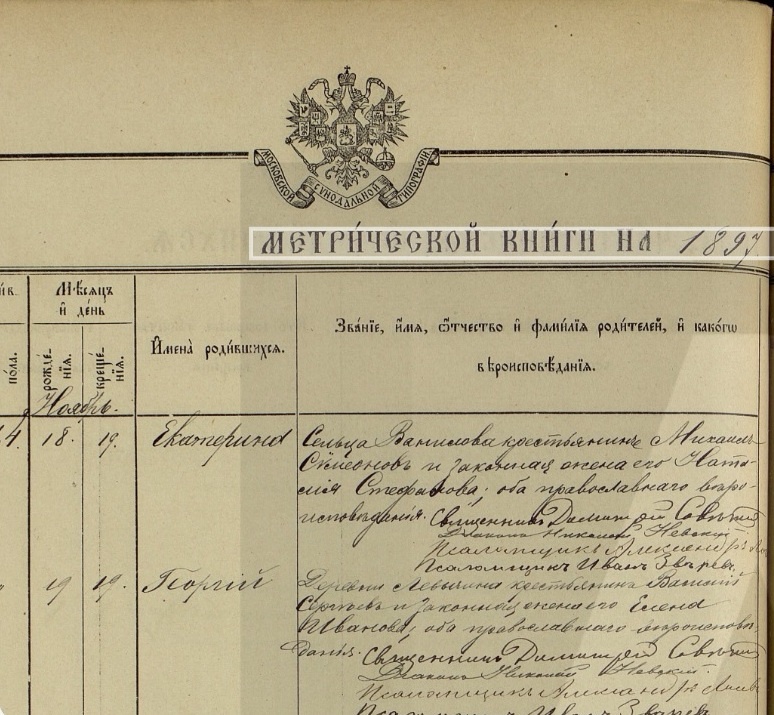 МОСКОВСКОЙ СУНОДАЛЬНОЙ ТИПОГРАФІИ
МЕТРИ́ЧЕСКОЙ КНИ́ГИ НА 1897
Мѣсяцъ
и҆ де́нь
по́ла.
рожде́-
нїѧ.
креще́-
нїѧ.
И҆мена̀ роди́вшихсѧ.
Зва́нїе, и҆́мѧ, ѻ҆́тчество и҆ фами́лїѧ роди́телей, и҆ како́гѡ
вѣроисповѣ́данїѧ.
Ноябрь.
14. 18. 19. Екатерина
Сельца Ванилова крестьянинъ Михаилъ
Сѵмеоновъ и законная жена его Ната-
лія Стефанова; оба православнаго вѣро-
исповѣданія. Священникъ Димитрій
Діаконъ Николай Невскій
Псаломщикъ Александръ
Псаломщикъ Иванъ Звѣревъ
19 19. Георгій
Деревни крестьянинъ Василій
Сергѣевъ и законная жена его Елена
Иванова; оба православнаго вѣроисповѣ-
данія. Священникъ Димитрій
Діаконъ Николай Невскій.
Псаломщикъ Александръ
Псаломщикъ Иванъ Звѣревъ